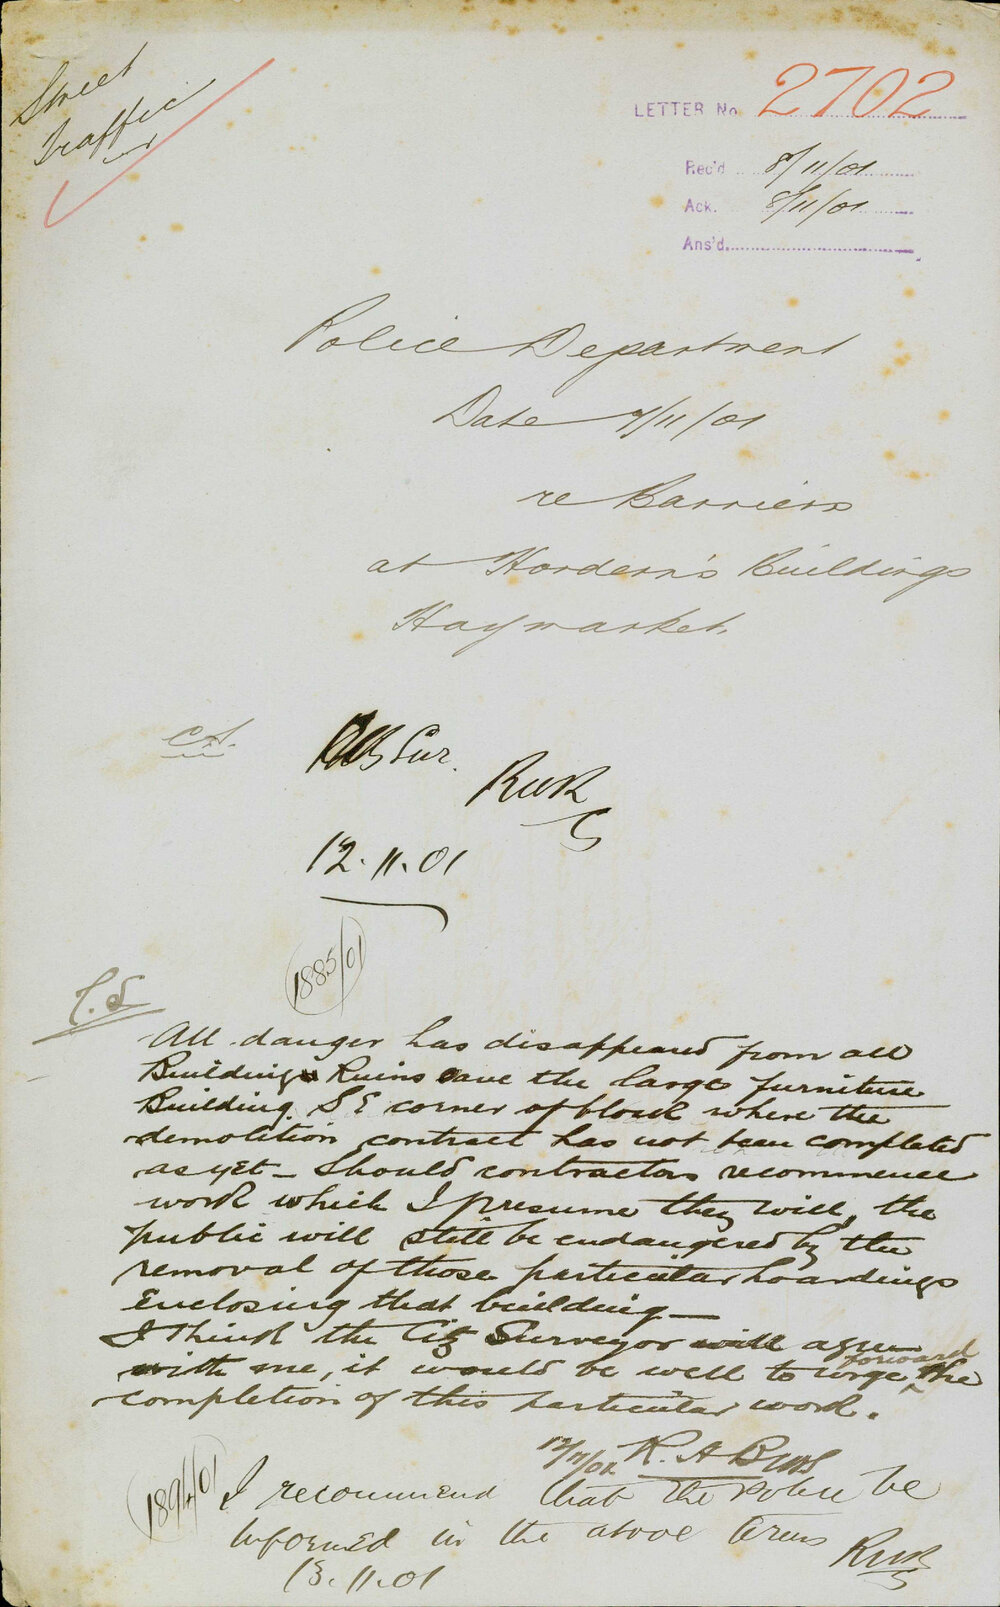 Street
Traffic
LETTER No 2702
Rec'd 8/11/01
Ack. 8/11/01
Ans'd
Police Department
Date 7/11/01
re Barriers
at Hordern's Buildings
Haymarket.
C.S.
Sur.
RWR
12.11.01
1885/01
C.S
All danger has disappeared from all
Building Ruins save the large furniture
Building S E corner of block where the
demolition contract has not been completed
as yet - Should contractors recommence
work which I presume they will, the
public will still be endangered by the
removal of those particular hoardings
Enclosing that building -
I think the City Surveyor will agree
with me, it would be well to urge forward the
completion of this particular work.
12/11/01 R. A
1894/01
I recommend that the Police be
informed in the above terms
RWR
13.11.01